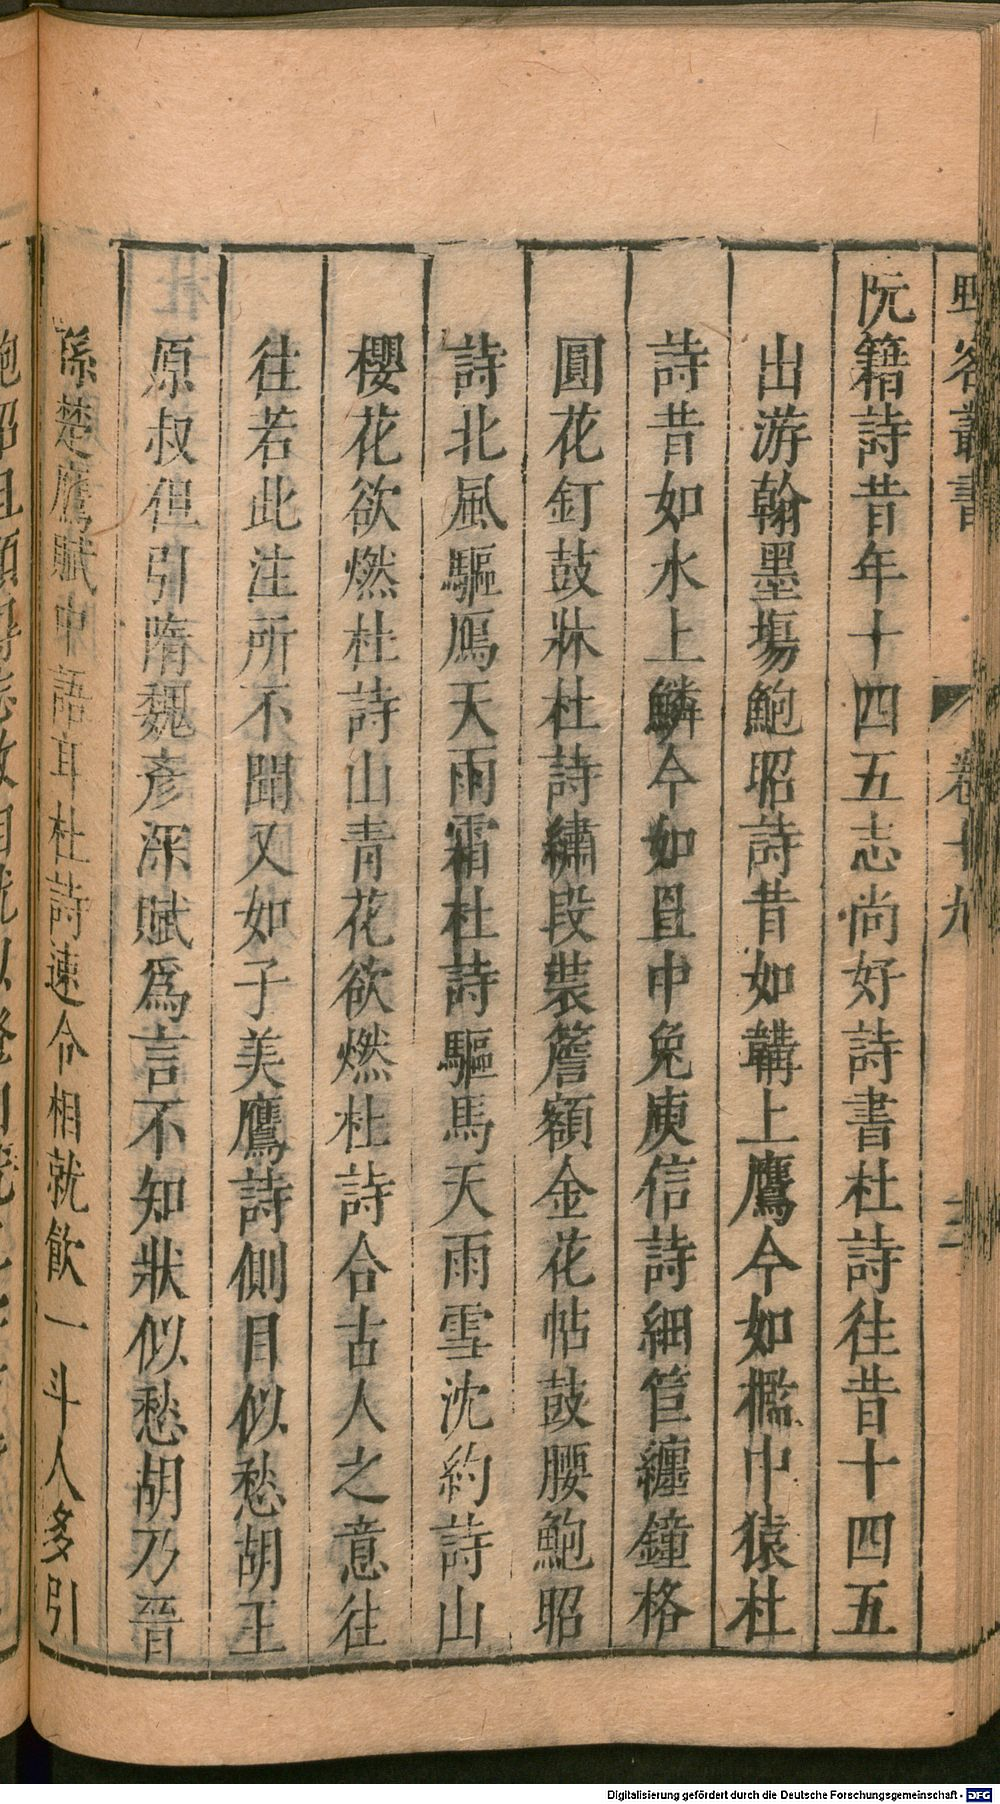 野客叢書
卷十九
三
阮籍詩昔年十四五志尚好詩書杜詩往昔十四五
出游翰墨塲鮑昭詩昔如韝上鷹今如檻中猿杜
詩昔如水上鱗今如罝中兔庾信詩細笸纏鐘格
圓花釘鼓牀杜詩繡段裝簷額金花帖鼓腰鮑昭
詩北風驅鴈天雨霜杜詩驅馬天雨雪沈約詩山
櫻花欲燃杜詩山青花欲燃杜詩合古人之意往
往若此注所不聞又如子美鷹詩側目似愁胡王
原叔但引隋魏彥深賦爲言不知狀似愁胡乃晉
孫楚鷹賦中語耳杜詩速令相就飲一斗人多引
Digitalisierung gefördert durch die Deutsche Forschungsgemeinschaft - DFG